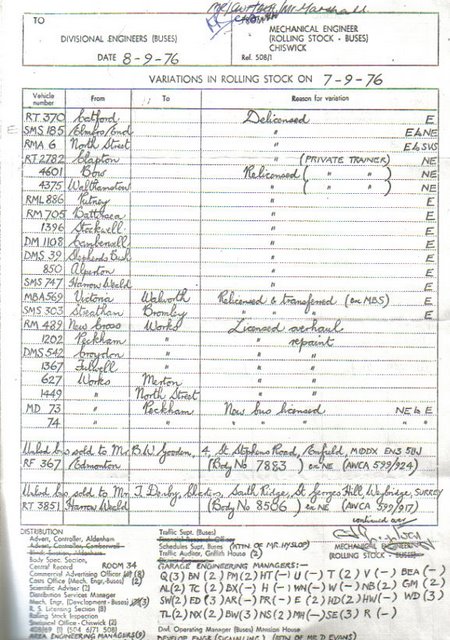 Mr Curtech, Mr Marshall
TO
DIVISIONAL ENGINEERS (BUSES)
DATE 8-9-76
MECHANICAL ENGINEER
(ROLLING STOCK - BUSES)
CHISWICK
Ref. 508/1
VARIATIONS IN ROLLING STOCK ON 7-9-76
Vehicle number From To Reason for variation
RT 370 Catford Delicensed E
SMS 185 Elmers End " E & NE
RMA 6 North Street " E & SVS
RT 2782 Clapton " (PRIVATE TRAINER) NE
4601 Bow Relicensed ( " " ) NE
4375 Walthamstow " ( " " ) NE
RML 886 Putney " E
RM 705 Battersea " E
1396 Stockwell " E
DM 1108 Camberwell " E
DMS 39 Shepherds Bush " E
850 Alperton " E
SMS 747 Harrow Weald " E
MBA 569 Victoria Walworth Relicensed & transferred (ex MBS) E
SMS 303 Streathan Bromley " " E
RM 489 New Cross Works Licensed overhaul
1202 Peckham " " repaint
DMS 542 Croydon " " "
1367 Fulwell " " "
627 Works Merton
1449 " North Street
MD 73 " Peckham New bus licensed NE & E
74 " " " " " " "
Unlicd bus sold to Mr. B.W. Gooden, 4, St Stephens Road, Enfield, MIDDX EN3 5UJ
RF 367 Edmonton (Body No 7883) ex NE (AWCA 599/924)
Unlicd bus sold to Mr T. Denby, South Ridge, St Georges Hill, Weybridge, SURREY
RT 3851 Harrow Weald (Body No 8506) ex NE (AWCA 599/917)
continued over
DISTRIBUTION
Advert. Controller, Aldenham
Advert. Controller Camberwell
Body Spec. Section,
Central Record ROOM 34
Commercial Advertising Officer (8)
Costs Office (Mech. Engr.-buses) (2)
Scientific Adviser (2)
Distribution Services Manager
Mech. Engr. (Development - Buses) (3)
R. S. Licensing Section (8)
Rolling Stock Inspection
Divisional Office - Chiswick (2)
Traffic Supt. (Buses)
Schedules Supt. Buses (ATTN OF MR. HYSLOP)
Traffic Auditor, Griffith House (2)
MECHANICAL ENGINEER
(ROLLING STOCK - BUSES)
GARAGE ENGINEERING MANAGERS:-
Q (3) BN (2) PM (2) HT (-) U (-) T (2) V (-) BEA (-)
AL (2) TC (2) BX (-) H (-) WN (-) W (-) NB (2) GM (2)
SW (2) ED (3) AR (-) PR (-) E (2) HD (2) HW (-) WD (3)
TL (2) NX (2) BW (3) NS (2) MH (-) SE (3) R (-)
Divl. Operating Manager (Buses) Mansion House